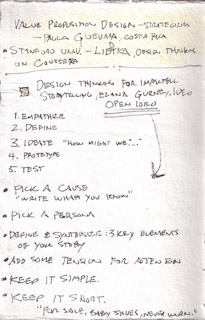 VALUE PROPOSITION DESIGN - STRATEGIZER
- PAULA COSTA RICA
• STANFORD UNIV. - DESIGN THINKING
ON COURSERA
DESIGN THINKING FOR IMPACTFUL
STORYTELLING, ELANA IDEO
OPEN IDEO
1. EMPATHIZE
2. DEFINE
3. IDEATE "HOW MIGHT WE..."
4. PROTOTYPE
5. TEST
• PICK A CAUSE
"WRITE WHAT YOU KNOW"
• PICK A PERSONA
• DEFINE & SYNTHESIZE: 3 KEY ELEMENTS
OF YOUR STORY
• ADD SOME TENSION FOR ATTENTION
• KEEP IT SIMPLE.
• KEEP IT SHORT.
"FOR SALE, BABY SHOES, NEVER WORN."